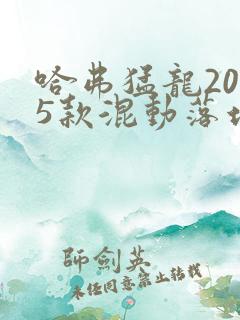 哈弗猛龍20
5款混動落地
師劍英
未經同意禁止轉載